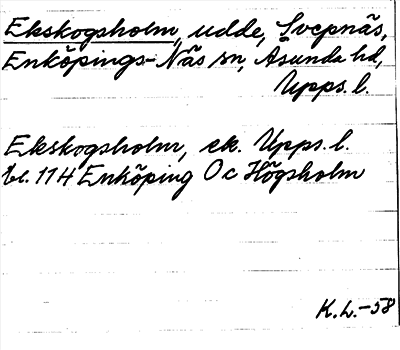 Ekskogsholm, udde, Svepnäs,
Enköpings-Näs sn, Åsunda hd,
Upps. l.
Ekskogsholm, ek. Upps. l.
bl. 114 Enköping Oc Högsholm
K.L.-58